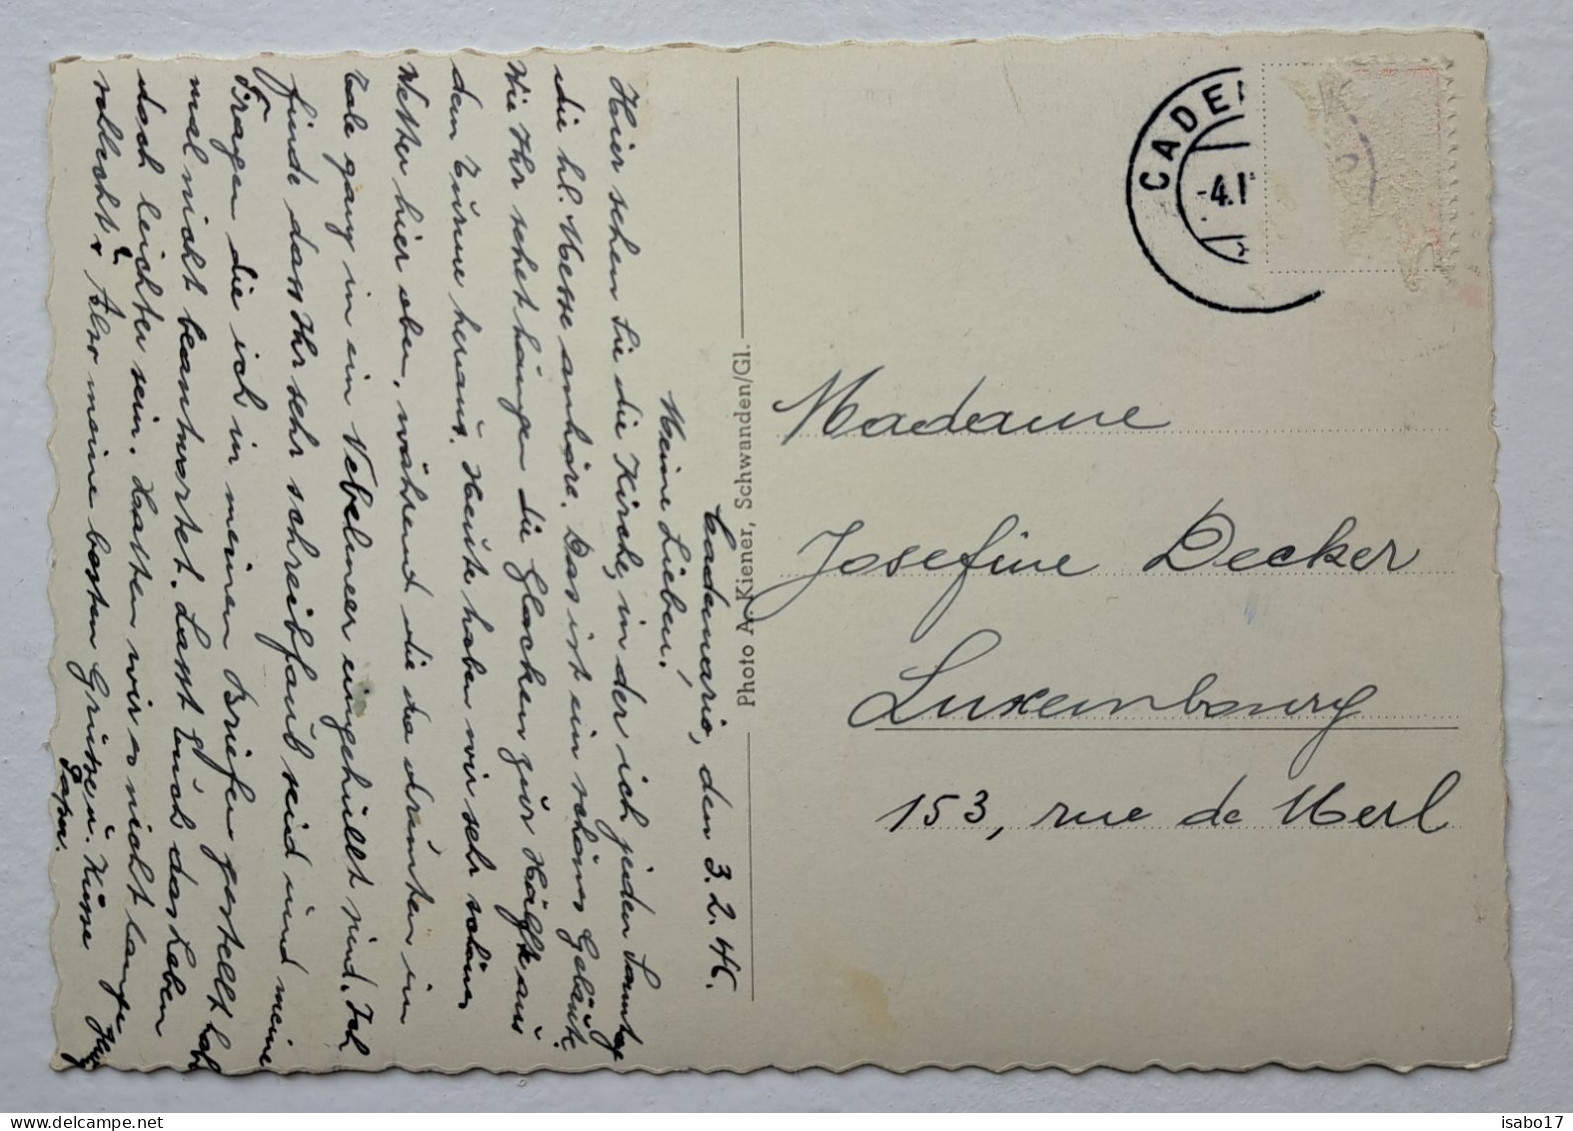 Cademario, den 3.2.46.
Meine Lieben!
Hier sehen Sie die Kirche, in der ich jeden Sonntag
die hl. Messe anhöre. Das ist ein schönes Geläute.
Wie Ihr sehet hängen die Glocken zur Hälfte aus
dem Turme heraus. Heute haben wir sehr schönes
Wetter hier oben, während die da drunten im
Tale ganz in ein Nebelmeer eingehüllt sind. Ich
finde dass Ihr sehr schreibfaul seid und meine
Fragen die ich in meinen Briefen gestellt hab
mal nicht beantwortet. Lasst Euch das Leben
doch leichter sein. Hatten wir es nicht lange
Also meine besten Grüsse u. Küsse
Papa.
Photo A. Kiener, Schwanden/Gl.
CADE
-4.I
Madame
Josefine Decker
Luxembourg
153, rue de Merl
isabo17